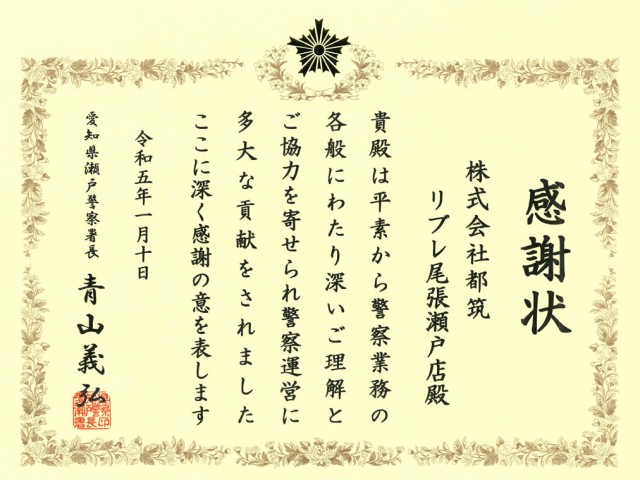 感謝状
株式会社都筑
リブレ尾張瀬戸店殿
貴殿は平素から警察業務の
各般にわたり深いご理解と
ご協力を寄せられ警察運営に
多大な貢献をされました
ここに深く感謝の意を表します
令和五年一月十日
愛知県瀬戸警察署長 青山義弘